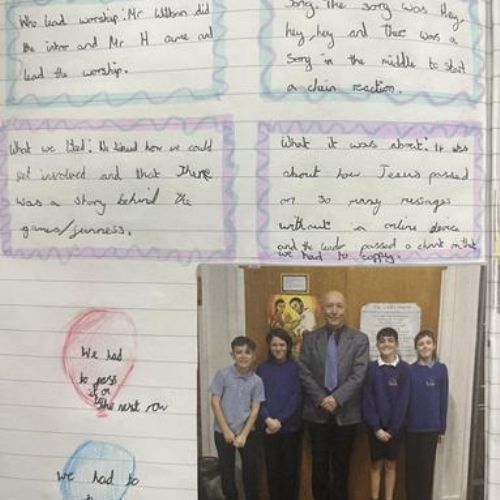 Who lead worship: Mr Wilson did
the intro and Mr H came and
lead the worship.
song. The song was Hey,
hey, hey and there was a
song in the middle to start
a chain reaction.
What we liked: We liked how we could
get involved and that there
was a story behind the
games/funness.
What it was about: It was
about how Jesus passed
on so many messages
without a online device
and the leader passed a chant on that
we had to coppy.
We had
to pass
it on
to
the next row
we had to